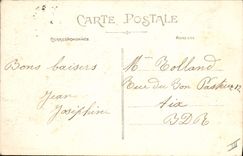 CARTE POSTALE
CORRESPONDANCE
ADRESSE
Bons baisers
Jean
Joséphine
Mme Rolland
Rue du Bon Pasteur 12
Aix
BDR